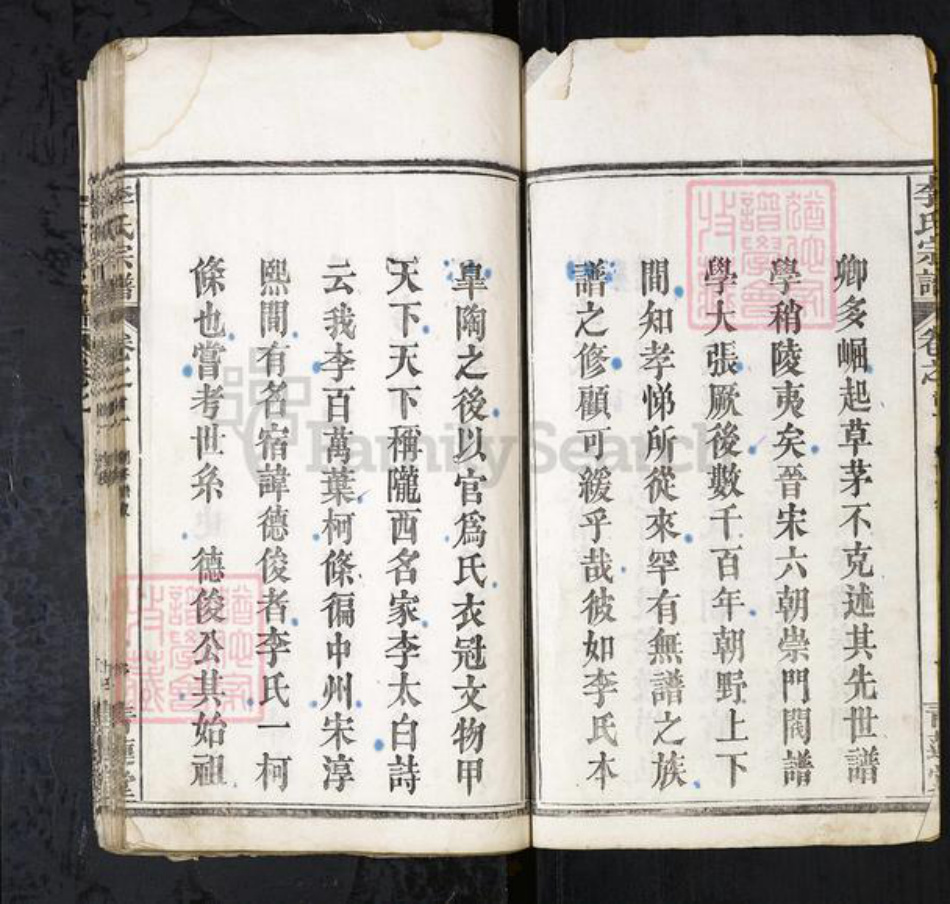 李氏宗譜
卿多崛起草茅不克述其先世譜
學稍陵夷矣晉宋六朝崇門閥譜
學大張厥後數千百年朝野上下
間知孝悌所從來罕有無譜之族
譜之修顧可緩乎哉彼如李氏本
臯陶之後以官爲氏衣冠文物甲
天下天下稱隴西名家李太白詩
云我李百萬葉柯條徧中州宋淳
熙間有名宿諱德俊者李氏一柯
條也嘗考世系 德俊公其始祖
李氏宗譜
卷之
青蓮堂
FamilySearch